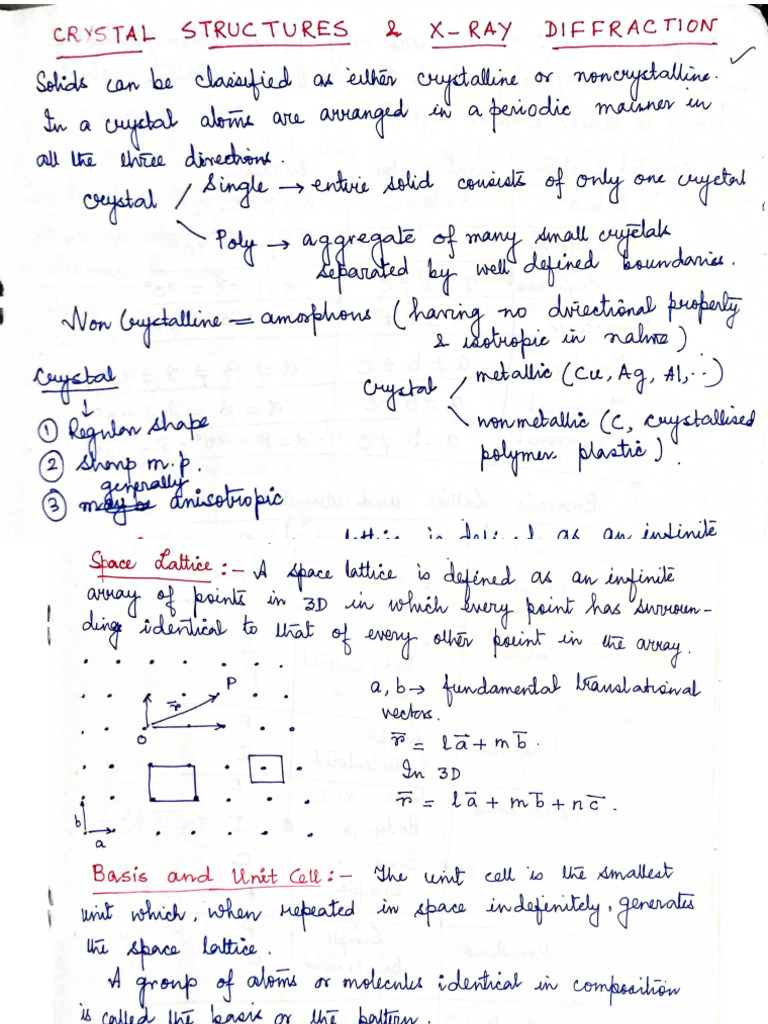 CRYSTAL STRUCTURES & X-RAY DIFFRACTION
Solids can be classified as either crystalline or noncrystalline.
In a crystal atoms are arranged in a periodic manner in
all the three directions.
crystal / Single → entire solid consists of only one crystal
\ Poly → aggregate of many small crystals
separated by well defined boundaries.
Non Crystalline = amorphous (having no directional property
& isotropic in nature)
Crystal
↓
① Regular shape
② Sharp m.p.
generally
③ may be anisotropic
crystal / metallic (Cu, Ag, Al, ..)
\ nonmetallic (C, crystallised
polymer plastic).
lattice is defined as an infinite
Space Lattice :- A space lattice is defined as an infinite
array of points in 3D in which every point has surroun-
dings identical to that of every other point in the array.
P
r̄
O
b
a
a, b → fundamental translational
vectors.
r̄ = lā + mb̄.
In 3D
r̄ = lā + mb̄ + nc̄.
Basis and Unit Cell :- The unit cell is the smallest
unit which, when repeated in space indefinitely, generates
the space lattice.
A group of atoms or molecules identical in composition
is called the basis or the pattern.